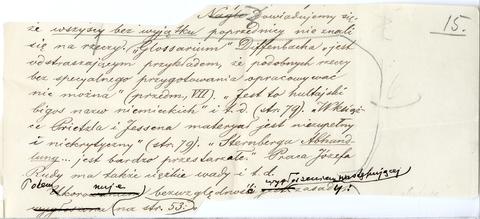 15.
Nagle Dowiadujemy się,
że wszyscy bez wyjątku poprzednicy nie znali
się na rzeczy. „Glossarium" Diffenbacha „jest
odstraszającym przykładem, że podobnych rzeczy
bez specyalnego przygotowania opracowywać
nie można" (przedm. VIII). „Jest to hultajski
bigos nazw niemieckich" i t.d. (str. 79). „W książ-
ce Pritzla i Jessena materyał jest niezupełny
i niekrytyczny" (str. 79). „Sternberga Abhand-
lung... jest bardzo przestarzałe." Praca Józefa
Rudy ma także wielkie wady i t. d.
Potem nuje bezwzględność wygłoszeniu następującej
zasady:
wygłoszona (na str. 53: